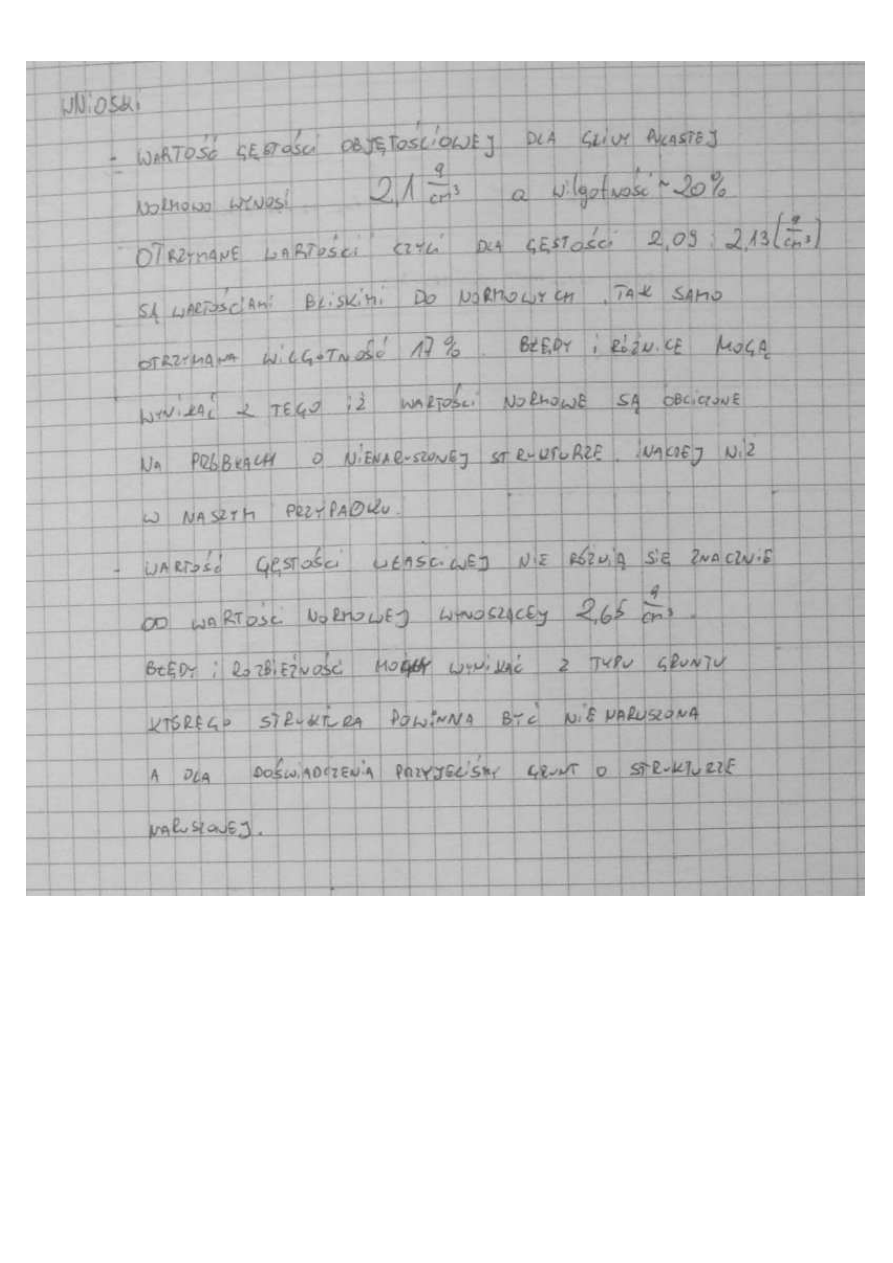 WNIOSKI
- WARTOŚĆ GĘSTOŚCI OBJĘTOŚCIOWEJ DLA GLINY PYLASTEJ
NORMOWO WYNOSI 2,1 g/cm³ a wilgotność ~ 20%
OTRZYMANE WARTOŚCI CZYLI DLA GĘSTOŚCI 2,09 i 2,13 (g/cm³)
SĄ WARTOŚCIAMI BLISKIMI DO NORMOWYCH, TAK SAMO
OTRZYMANA WILGOTNOŚĆ 17%. BŁĘDY I RÓŻNICE MOGĄ
WYNIKAĆ Z TEGO IŻ WARTOŚCI NORMOWE SĄ OBLICZONE
NA PRÓBKACH O NIENARUSZONEJ STRUKTURZE. INACZEJ NIŻ
W NASZYM PRZYPADKU.
- WARTOŚĆ GĘSTOŚCI WŁAŚCIWEJ NIE RÓŻNIĄ SIĘ ZNACZNIE
OD WARTOŚĆ NORMOWEJ WYNOSZĄCEY 2,65 g/cm³.
BŁĘDY I ROZBIEŻNOŚĆ WYNIKAĆ Z TYPU GRUNTU
KTÓREGO STRUKTURA POWINNA BYĆ NIENARUSZONA
A DLA DOŚWIADCZENIA PRZYJĘLIŚMY GRUNT O STRUKTURZE
NARUSZONEJ.